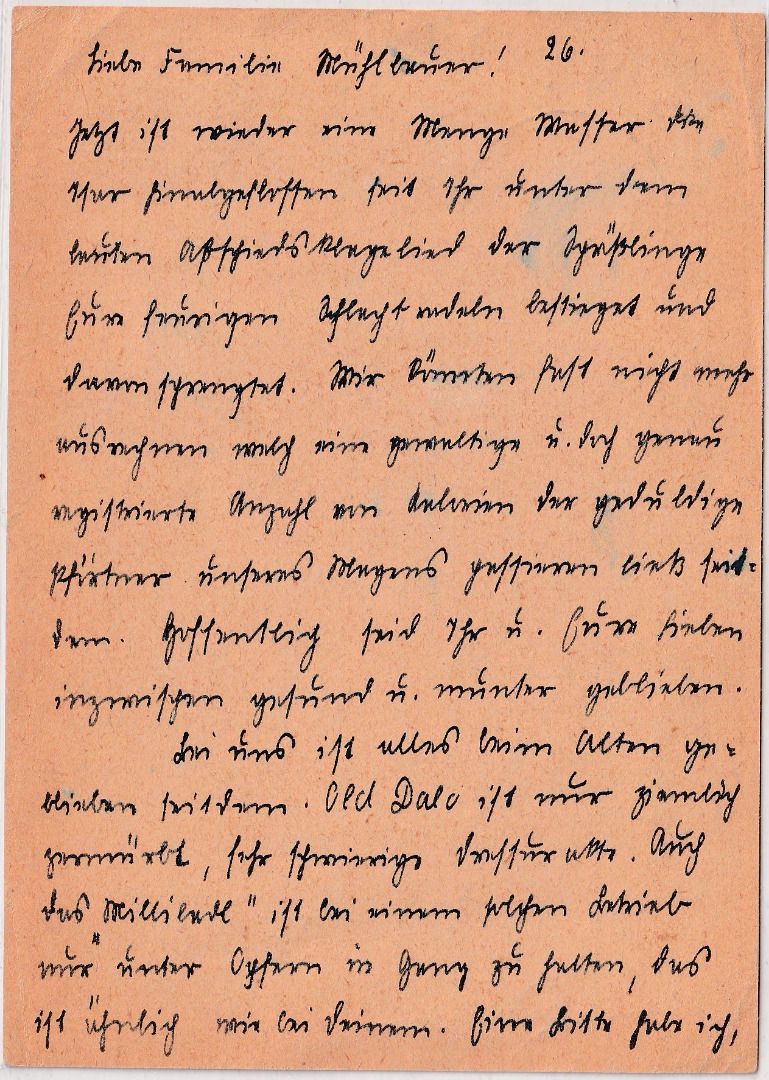 Liebe Familie Mühlbauer! 26.
Jetzt ist wieder eine Menge Wasser die
Isar hinabgeflossen seit Ihr unter dem
lauten Abschiedsklagelied der Spätzlinge
Eure feurigen Schlachtradeln bestieget und
davonsprengtet. Wir könnten fast nicht mehr
ausrechnen welch eine gewaltige u. doch genau
registrierte Anzahl von Kalorien der geduldige
Pförtner unseres Magens passieren ließ seit-
dem. Hoffentlich seid Ihr u. Eure Lieben
inzwischen gesund u. munter geblieben.
Bei uns ist alles beim Alten ge-
blieben seitdem. Old Dalo ist nur ziemlich
zermürbt, sehr schwierige Dressurakte. Auch
das Milliladl" ist bei einem solchen Betrieb
nur unter Opfern in Gang zu halten, das
ist ähnlich wie bei Deinem. Eine Bitte habe ich,